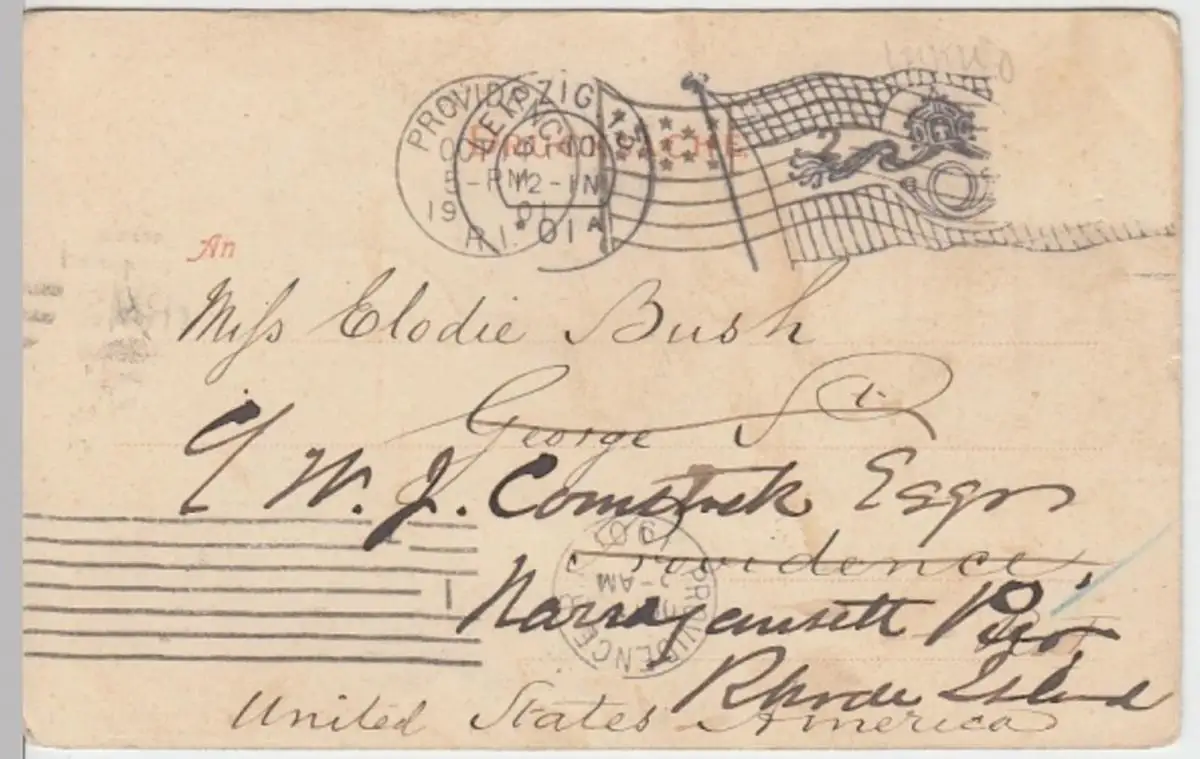 PROVIDENCE
LEIPZIG 13
DRUCKSACHE
2
OCT
5-PM 12-1N
19 01
R.I. * 01 A
An
Miss Elodie Bush
George St.
C/ W. J. Comstock Esqr
Providence
PROVIDENCE
-AM
Narragansett Pier
Rhode Island
United States America